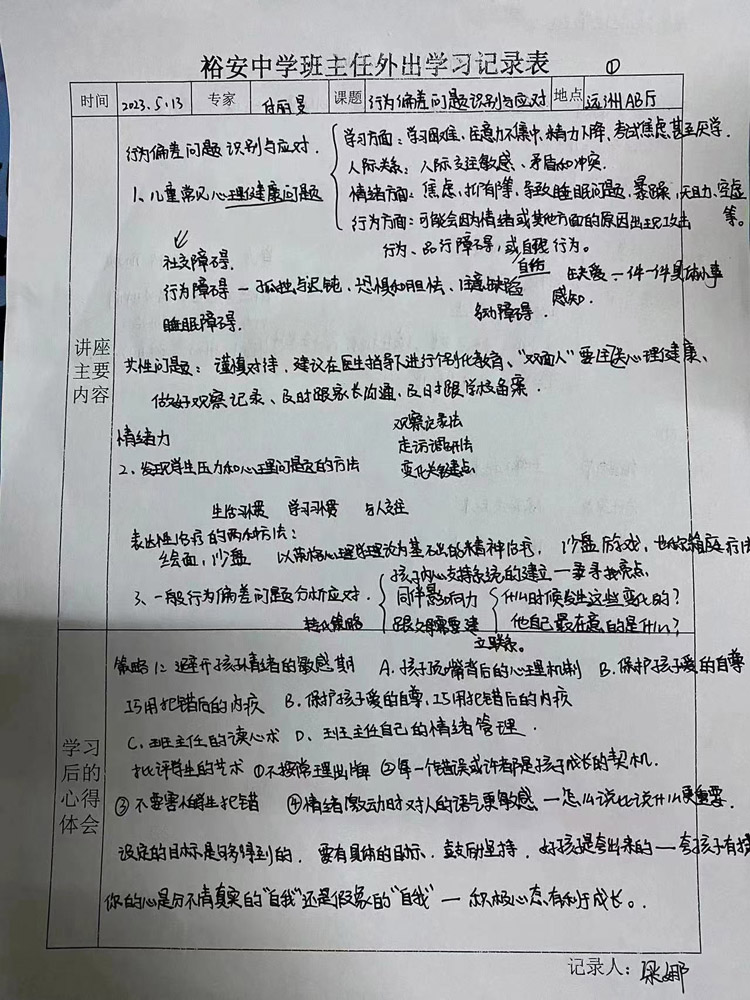 裕安中学班主任外出学习记录表 ①
时间 2023.5.13 专家 付丽旻 课题 行为偏差问题识别与应对 地点 远洲AB厅
学习方面：学习困难、注意力不集中、精力下降、考试焦虑甚至厌学.
行为偏差问题识别与应对.
人际关系：人际交往敏感、矛盾和冲突.
1、儿童常见心理健康问题
情绪方面：焦虑、抑郁等，导致睡眠问题、暴躁，无助、空虚等。
行为方面：可能会因为情绪或其他方面的原因出现攻击
行为、品行障碍，或自残行为。
社交障碍.
自伤
行为障碍 — 孤独与迟钝、恐惧和胆怯、注意缺陷
缺爱 — 一件一件具体小事
多动障碍.
感知.
睡眠障碍.
讲座主要内容
共性问题：谨慎对待，建议在医生指导下进行个别化教育、"双面人"要关注心理健康、
做好观察记录、及时跟家长沟通，及时跟学校备案.
情绪力
观察记录法
走访调研法
2、发现学生压力和心理问题的方法
变化关键点
生活习惯 学习习惯 与人交往
表达性治疗的两种方法：
绘画，沙盘 以荣格心理学理论为基础的精神治疗， 沙盘游戏，
孩子内心支持系统的建立 — 要寻找亮点
3、一般行为偏差问题分析应对.
同伴影响力
什么时候发生这些变化的？
转化策略
跟父母需要建立联系。
他自己最在意的是什么？
学习后的心得体会
策略1：避开孩子情绪的敏感期 A. 孩子顶嘴背后的心理机制 B. 保护孩子爱的自尊
巧用犯错后的内疚 B. 保护孩子爱的自尊，巧用犯错后的内疚
C. 班主任的读心术 D. 班主任自己的情绪管理.
批评学生的艺术 ①不按常理出牌 ②每一个错误或许都是孩子成长的契机.
③不要害怕学生犯错 ④情绪激动时对人的语气更敏感 — 怎么说比说什么更重要.
设定的目标是够得到的. 要有具体的目标. 鼓励坚持. 好孩子是夸出来的 — 夸孩子有技
你的心是分不清真实的"自我"还是假象的"自我" — 积极心态有利于成长。
记录人：梁娜